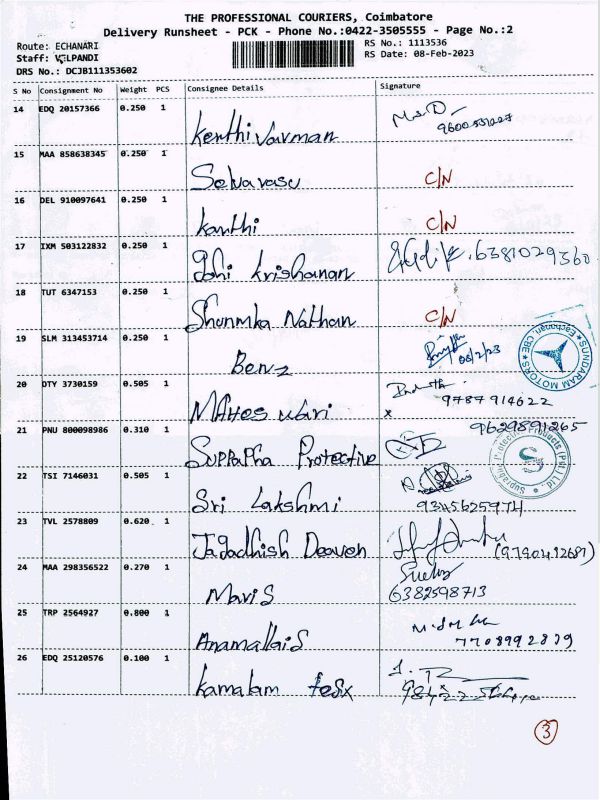 THE PROFESSIONAL COURIERS, Coimbatore
Delivery Runsheet - PCK - Phone No.:0422-3505555 - Page No.:2
Route: ECHANARI
RS No.: 1113536
Staff: VELPANDI
RS Date: 08-Feb-2023
DRS No.: DCJB111353602
S No Consignment No Weight PCS Consignee Details Signature
14 EDQ 20157366 0.250 1 Kenthi Varman
15 MAA 858638345 0.250 1 Selvavasu C/N
16 DEL 910097641 0.250 1 Kanthi C/N
17 IXM 503122832 0.250 1 Krishanan 6381029360
18 TUT 6347153 0.250 1 Shunmka Nathan C/N
19 SLM 313453714 0.250 1 Benz 08/2/23
SUNDARAM MOTORS Eachanari, CBE
20 DTY 3730159 0.505 1 Mahes wari x 9787914622
21 PNU 800098986 0.310 1 Suppapha Protective 9629891265
22 TSI 7146031 0.505 1 Sri Lakshmi 9345625974
23 TVL 2578809 0.620 1 Jagadhish Deaven (9790412681)
24 MAA 298356522 0.270 1 Mavis 6382598713
25 TRP 2564927 0.800 1 Anamallais 7708992839
26 EDQ 25120576 0.100 1 Kamalam texx
3